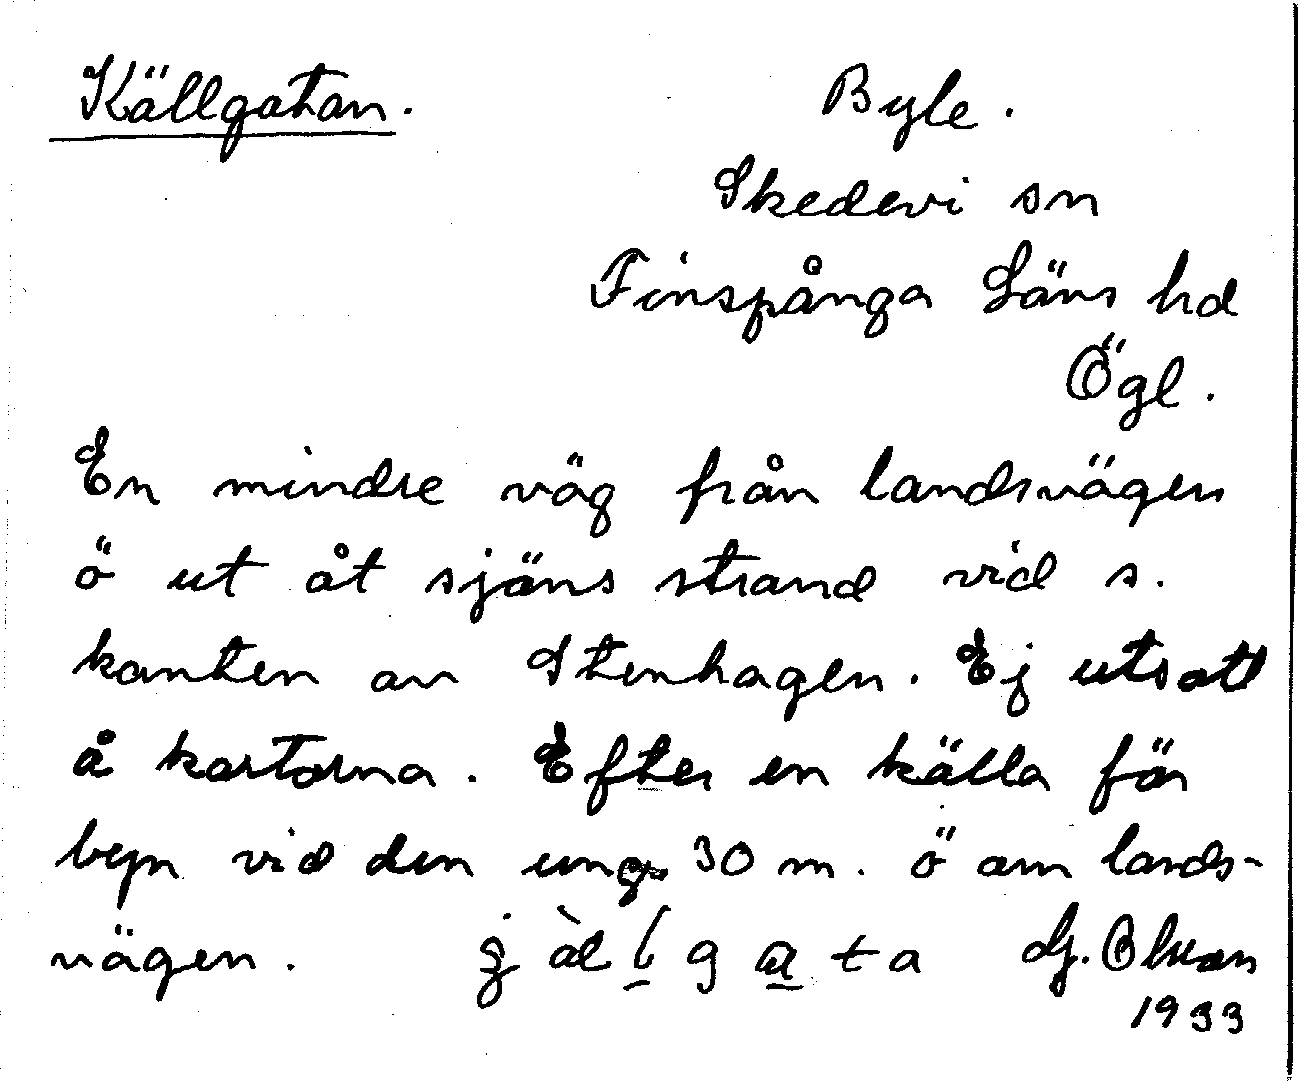 Källgatan.
Byle.
Skedevi sn
Finspånga Läns hd
Ögl.
En mindre väg från landsvägen
ö ut åt sjöns strand vid s.
kanten av Stenhagen. Ej utsatt
å kartorna. Efter en källa för
byn vid den ung. 30 m. ö om lands-
vägen.
1933